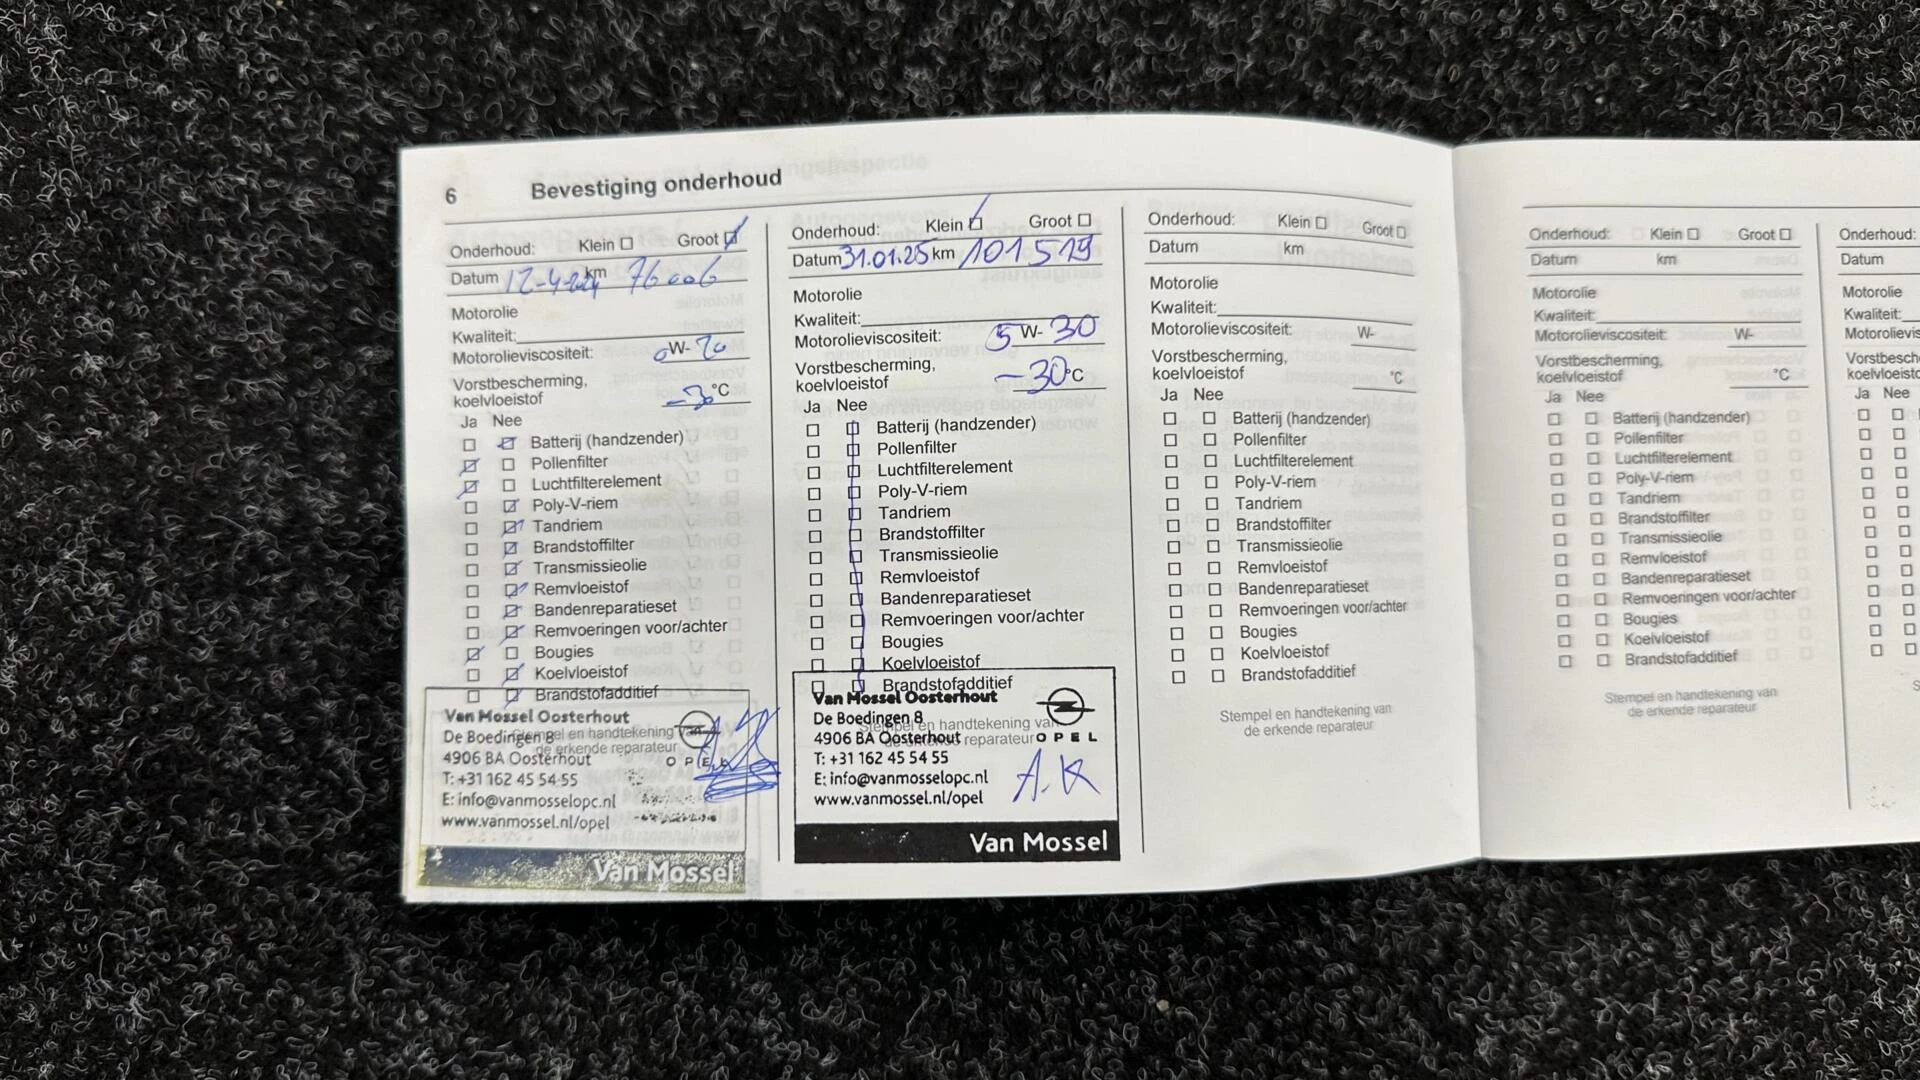 6 Bevestiging onderhoud
Onderhoud: Klein Groot
Datum 12-4-2024 km 76006
Motorolie
Kwaliteit:
Motorolieviscositeit: 0W-20
Vorstbescherming,
koelvloeistof -30°C
Ja Nee
Batterij (handzender)
Pollenfilter
Luchtfilterelement
Poly-V-riem
Tandriem
Brandstoffilter
Transmissieolie
Remvloeistof
Bandenreparatieset
Remvoeringen voor/achter
Bougies
Koelvloeistof
Brandstofadditief
Stempel en handtekening van
de erkende reparateur
Van Mossel Oosterhout
De Boedingen 8
4906 BA Oosterhout
T: +31 162 45 54 55
E: info@vanmosselopc.nl
www.vanmossel.nl/opel
OPEL
Van Mossel
Onderhoud: Klein Groot
Datum 31.01.25 km 101519
Motorolie
Kwaliteit:
Motorolieviscositeit: 5W-30
Vorstbescherming,
koelvloeistof -30°C
Ja Nee
Batterij (handzender)
Pollenfilter
Luchtfilterelement
Poly-V-riem
Tandriem
Brandstoffilter
Transmissieolie
Remvloeistof
Bandenreparatieset
Remvoeringen voor/achter
Bougies
Koelvloeistof
Brandstofadditief
Stempel en handtekening van
de erkende reparateur
Van Mossel Oosterhout
De Boedingen 8
4906 BA Oosterhout
T: +31 162 45 54 55
E: info@vanmosselopc.nl
www.vanmossel.nl/opel
OPEL
A.K
Van Mossel
Onderhoud: Klein Groot
Datum km
Motorolie
Kwaliteit:
Motorolieviscositeit: W-
Vorstbescherming,
koelvloeistof °C
Ja Nee
Batterij (handzender)
Pollenfilter
Luchtfilterelement
Poly-V-riem
Tandriem
Brandstoffilter
Transmissieolie
Remvloeistof
Bandenreparatieset
Remvoeringen voor/achter
Bougies
Koelvloeistof
Brandstofadditief
Stempel en handtekening van
de erkende reparateur
Onderhoud: Klein Groot
Datum km
Motorolie
Kwaliteit:
Motorolieviscositeit: W-
Vorstbescherming,
koelvloeistof °C
Ja Nee
Batterij (handzender)
Pollenfilter
Luchtfilterelement
Poly-V-riem
Tandriem
Brandstoffilter
Transmissieolie
Remvloeistof
Bandenreparatieset
Remvoeringen voor/achter
Bougies
Koelvloeistof
Brandstofadditief
Stempel en handtekening van
de erkende reparateur
Onderhoud:
Datum
Motorolie
Kwaliteit:
Motorolievis
Vorstbesch
koelvloeisto
Ja Nee